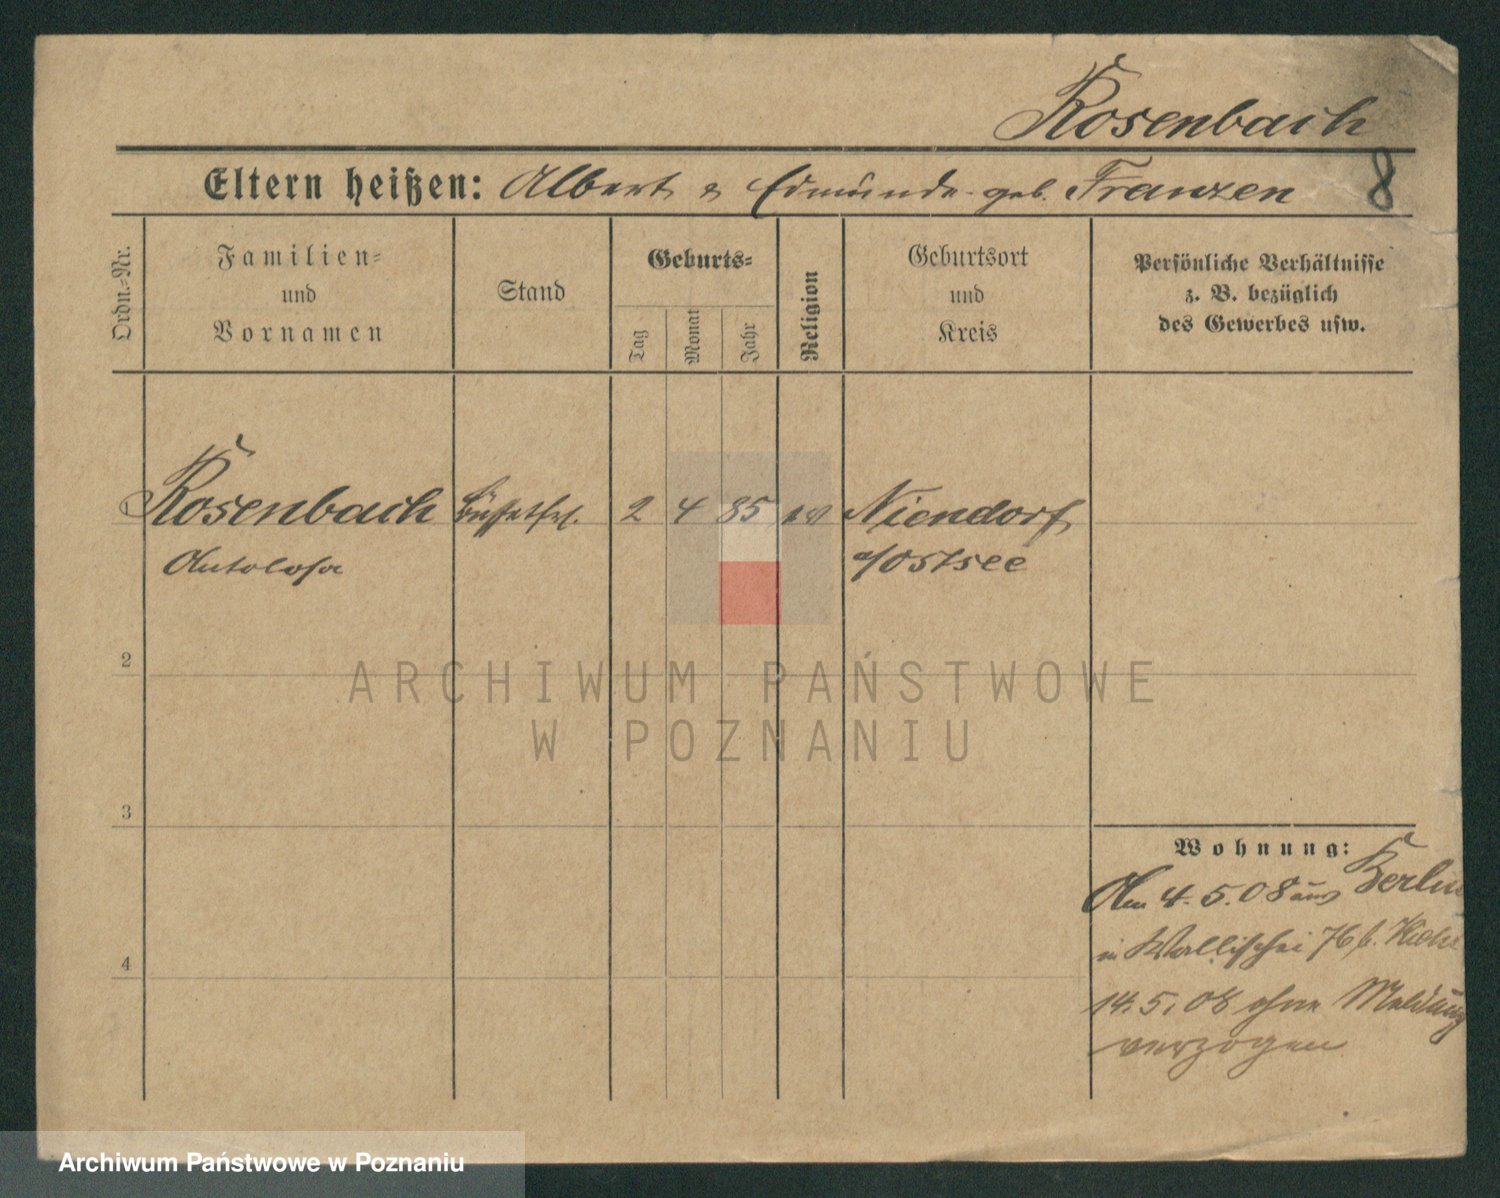 Rosenbach
Eltern heißen: Albert & Edmunde geb. Franzen 8
Ordn.=Nr.
Familien=
und
Vornamen
Stand
Geburts=
Tag
Monat
Jahr
Religion
Geburtsort
und
Kreis
Persönliche Verhältnisse
z. B. bezüglich
des Gewerbes usw.
Rosenbach Büffetfrl. 2 4 85 ev Niendorf
a/Ostsee
2
ARCHIWUM PAŃSTWOWE
W POZNANIU
3
Wohnung:
Am 4.5.08 aus Berlin
in Wallischei 76 b.
14.5.08 ohne Meldung
verzogen
4
Archiwum Państwowe w Poznaniu